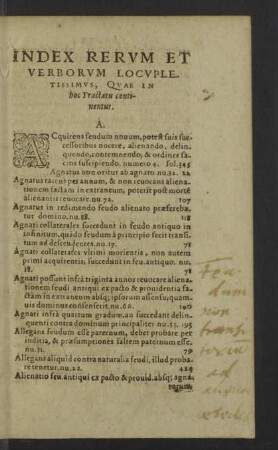 INDEX RERVM ET
VERBORVM LOCVPLE-
TISSIMVS, QVAE IN
hoc Tractatu conti-
nentur.
A.
ACquirens feudum nouum, potest suis suc-
cessoribus nocere, alienando, delin-
quendo, contemnendo, & ordines sa-
cros suscipiendo. numero 4. fol. 145
Agnatus non oritur ab agnato. nu.32. 22
Agnatus tacens per annum, & non reuocans aliena-
tionem factam in extraneum, poterit post mortē
alienantis reuocare. nu.72. 107
Agnatus in redimendo feudo alienato præferetur
domino. nu.88. 118
Agnati collaterales succedunt in feudo antiquo in
infinitum, quādo feudum à principio fecit transi-
tum ad descendentes. nu.19. 78
Agnati collaterales vltimi morientis, non autem
primi acquirentis, succedunt in feu. antiquo. nu.
18. 78
Agnati possunt infra triginta annos reuocare aliena-
tionem feudi antiqui ex pacto & prouidentia fa-
ctam in extraneum absq; ipsorum assensu, quam-
uis dominus consenserit. nu.60. 102
Agnati infra quartum gradum, an succedant delin-
quenti contra dominum principaliter nu.53. 195
Allegans feudum esse paternum, debet probare per
antiquitatē, & præsumptiones saltem paternum esse.
nu.31. 79
Allegans aliquid contra naturalia feudi, illud proba-
re tenetur. nu.22. 224
Alienatio feu. antiqui ex pacto & prouid. absq; agna-
torum
Feu
dum
non
transi
ad